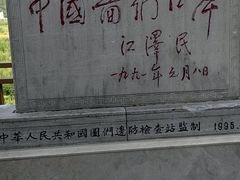 中國圖們江岸
江澤民
一九九一年元月八日
中華人民共和國圖們邊防檢查站監制 1995.